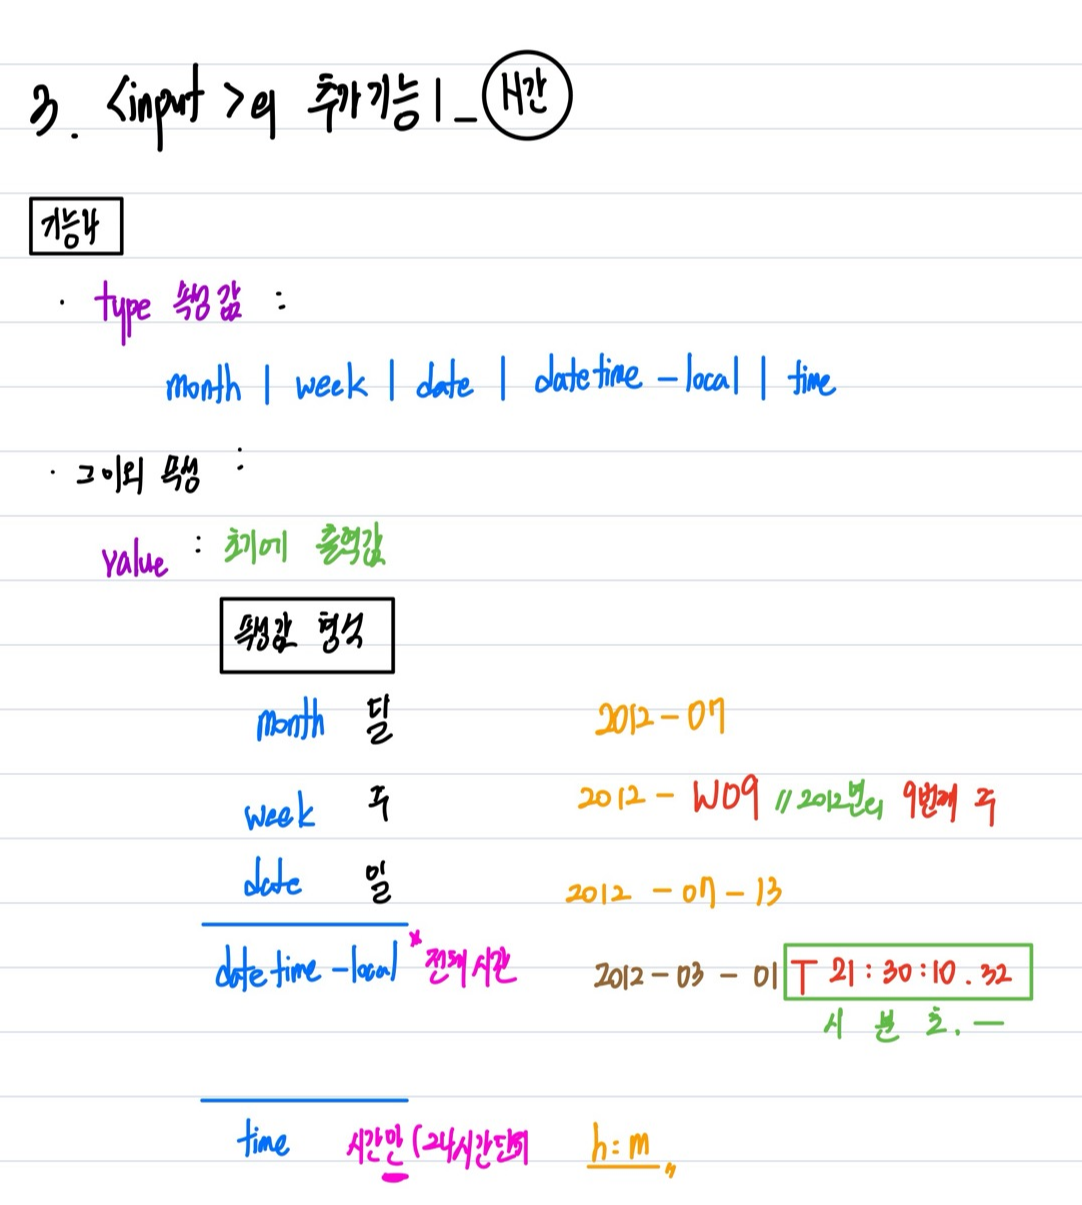 3. <input>의 추가기능 1_ 시간
기능과
· type 속성값 :
month | week | date | datetime-local | time
· 그이외 속성 :
value : 초기에 출력값
속성값 형식
month 달 2012-07
week 주 2012-W09 //2012년의 9번째 주
date 일 2012-07-13
datetime-local * 전체시간 2012-03-01 T 21:30:10.32
시 분 초. —
time 시간만 (24시간단위 h:m